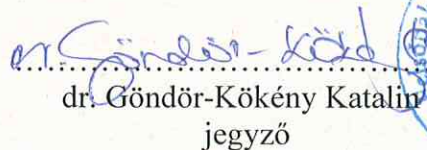 dr. Göndör-Köké
dr. Göndör-Kökény Katalin
jegyző